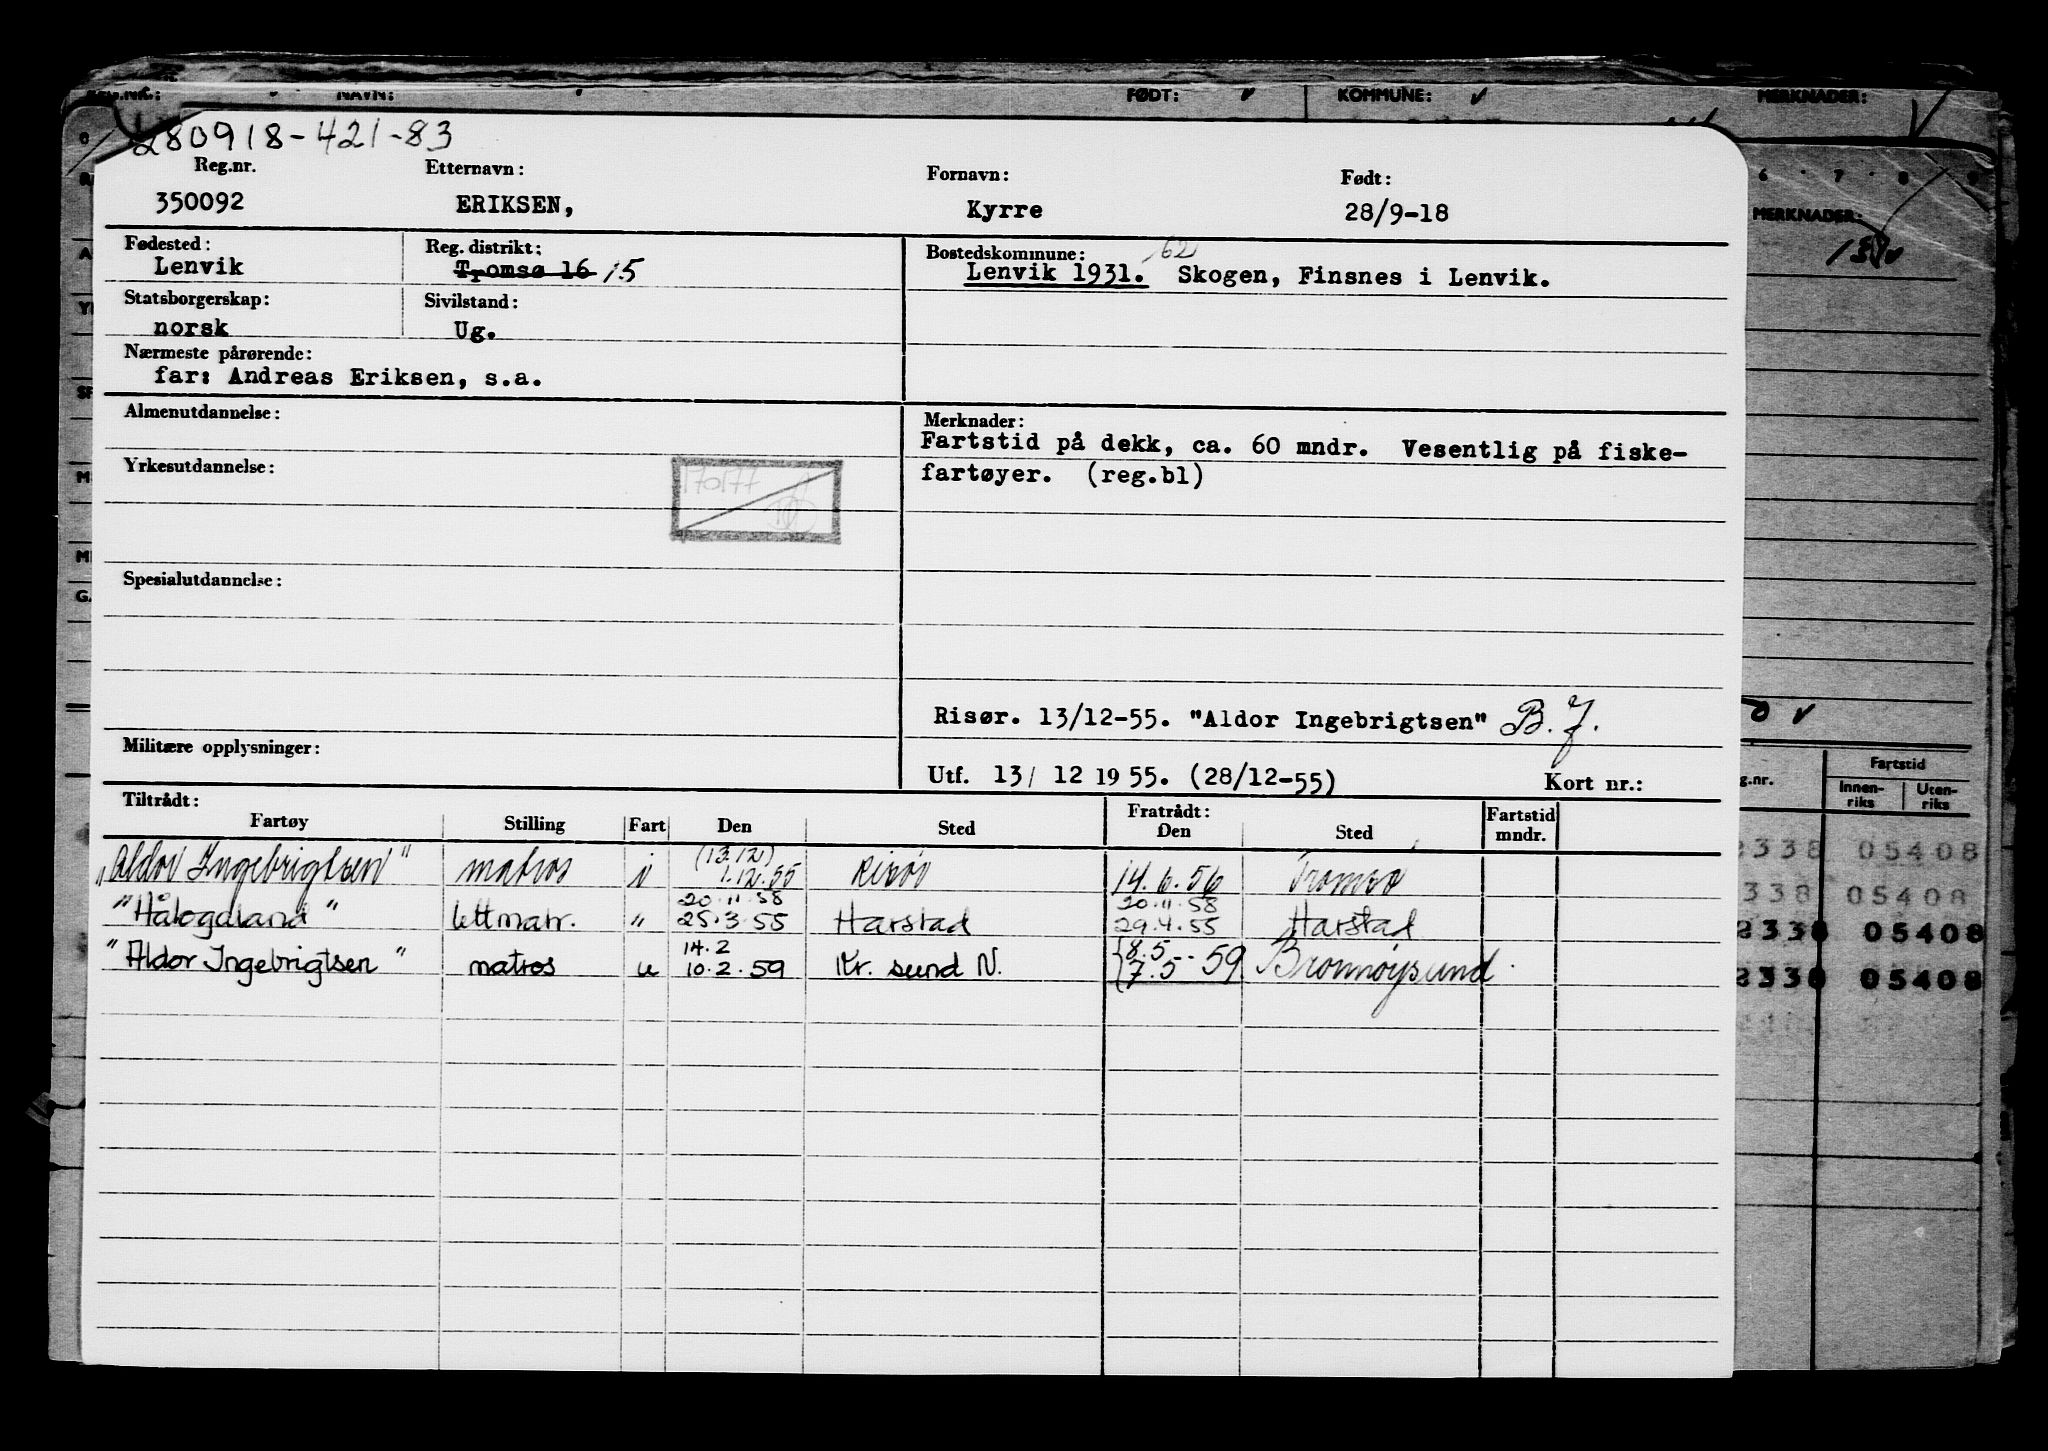 REG.NR.: NAVN: FØDT: KOMMUNE: MERKNADER:
280918-421-83
Reg.nr. Etternavn: Fornavn: Født:
350092 ERIKSEN, Kyrre 28/9-18
Fødested: Reg. distrikt: Bostedskommune: 62
Lenvik Tromsø 16 15 Lenvik 1931. Skogen, Finsnes i Lenvik.
Statsborgerskap: Sivilstand:
norsk Ug.
Nærmeste pårørende:
far: Andreas Eriksen, s.a.
Almenutdannelse: Merknader:
Fartstid på dekk, ca. 60 mndr. Vesentlig på fiske-
Yrkesutdannelse: fartøyer. (reg.bl)
170177
Spesialutdannelse:
Risør. 13/12-55. "Aldor Ingebrigtsen" B.J.
Militære opplysninger:
Utf. 13/ 12 1955. (28/12-55) Kort nr.:
Tiltrådt: Fratrådt: Fartstid
Fartøy Stilling Fart Den Sted Den Sted mndr.
(13.12)
"Aldor Ingebrigtsen" matros i 1.12.55 Risør 14.6.56 Tromsø
20.11.58 20.11.58
"Hålogaland" lettmatr. " 25.3.55 Harstad 29.4.55 Harstad
14.2 8.5
"Aldor Ingebrigtsen" matros u 10.2.59 Kr. sund N. 7.5-59 Brønnøysund.
6 7 8 9
MERKNADER:
g.nr. Fartstid
Innen-riks Uten-riks
2338 05408
2338 05408
2338 05408
2338 05408